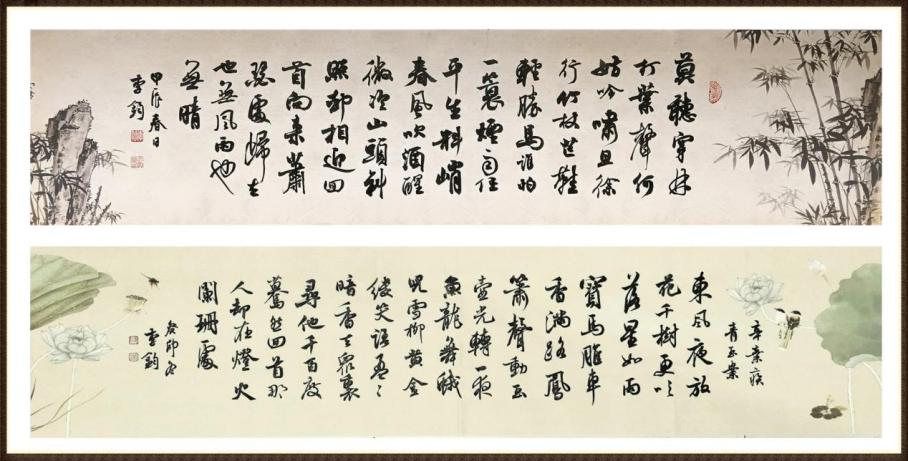 莫聽穿林
打葉聲何
妨吟嘯且徐
行竹杖芒鞋
輕勝馬誰怕
一蓑煙雨任
平生料峭
春風吹酒醒
微冷山頭斜
照卻相迎回
首向來蕭
瑟處歸去
也無風雨也
無晴
甲辰春日
李鈞
辛棄疾
青玉案
東風夜放
花千樹更吹
落星如雨
寶馬雕車
香滿路鳳
簫聲動玉
壺光轉一夜
魚龍舞蛾
兒雪柳黃金
縷笑語盈〻
暗香去眾裏
尋他千百度
驀然回首那
人卻在燈火
闌珊處
癸卯冬
李鈞